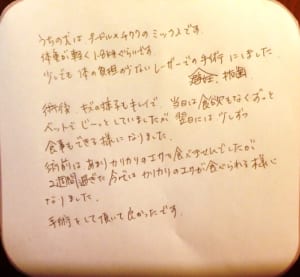 うちの犬は、プードル×チワワのミックスです。
体重が軽く 1.8kgぐらいです。
少しでも 体の負担の少ない レーザーでの手術 にしました
術後 キズの様子もキレイで、当日は食欲もなくずっと
ベットで じーっとしていましたが 翌日には 少しずつ
食事もできる様になりました。
術前は あまりカリカリのエサを食べませんでしたが、
2週間過ぎた 今では カリカリのエサが食べられる様に
なりました。
手術をして頂いて良かったです。